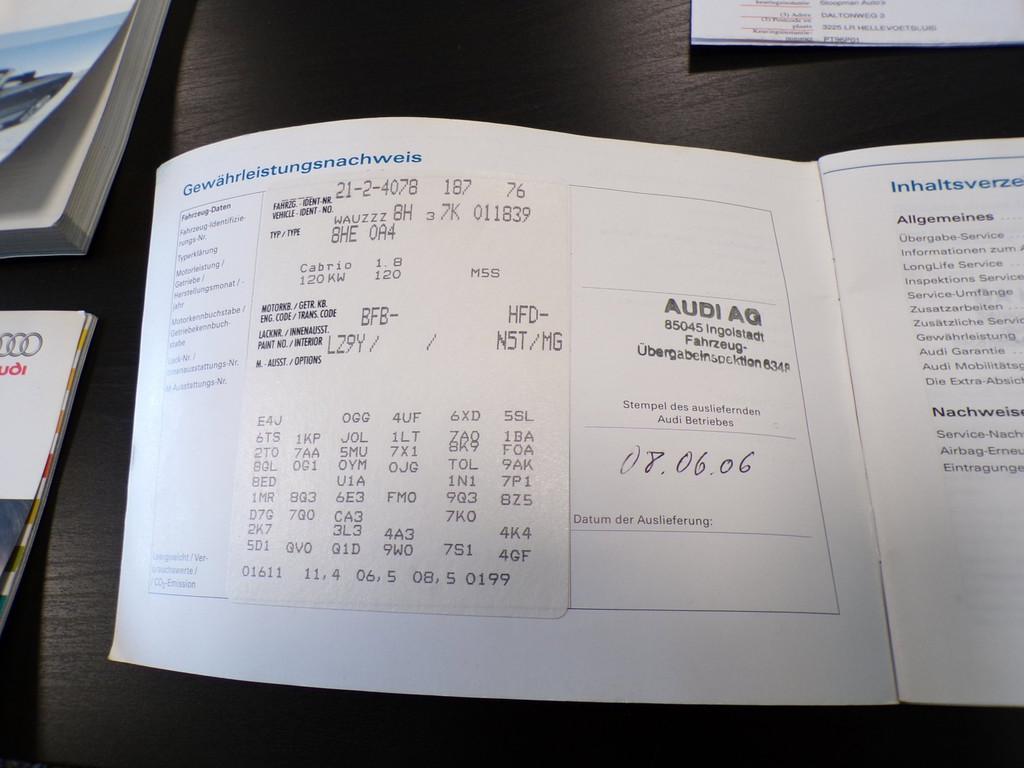 Stoopman Auto's
DALTONWEG 3
3225 LR HELLEVOETSLUIS
PT96P01
Gewährleistungsnachweis
Fahrzeug-Daten
Fahrzeug-Identifizie-
rungs-Nr.
Typerklärung
Motorleistung /
Getriebe /
Herstellungsmonat / -
jahr
Motorkennbuchstabe /
Getriebekennbuch-
stabe
Lack-Nr. /
Innenausstattungs-Nr.
M-Ausstattungs-Nr.
Leergewicht / Ver-
brauchswerte /
CO₂-Emission
21-2-4078 187 76
FAHRZG.-IDENT-NR.
VEHICLE-IDENT-NO.
WAUZZZ 8H 3 7K 011839
TYP / TYPE 8HE 0A4
Cabrio 1.8
120KW 120 M5S
MOTORKB. / GETR. KB.
ENG. CODE / TRANS. CODE
BFB- HFD-
LACKNR. / INNENAUSST.
PAINT NO. / INTERIOR
LZ9Y / / N5T/MG
M.-AUSST. / OPTIONS
E4J 0GG 4UF 6XD 5SL
6TS 1KP J0L 1LT 7A0 1BA
2T0 7AA 5MU 7X1 8K9 F0A
8GL 0G1 0YM 0JG T0L 9AK
8ED U1A 1N1 7P1
1MR 8Q3 6E3 FM0 9Q3 8Z5
D7G 7Q0 CA3 7K0
2K7 3L3 4A3 4K4
5D1 QV0 Q1D 9W0 7S1 4GF
01611 11,4 06,5 08,5 0199
AUDI AG
85045 Ingolstadt
Fahrzeug-
Übergabeinspektion 634P
Stempel des ausliefernden
Audi Betriebes
08.06.06
Datum der Auslieferung:
Inhaltsverze
Allgemeines
Übergabe-Service
Informationen zum
LongLife Service
Inspektions Service
Service-Umfänge
Zusatzarbeiten
Zusätzliche Servic
Gewährleistung
Audi Garantie
Audi Mobilitätsg
Die Extra-Absich
Nachweise
Service-Nach
Airbag-Erneu
Eintragunge
udi